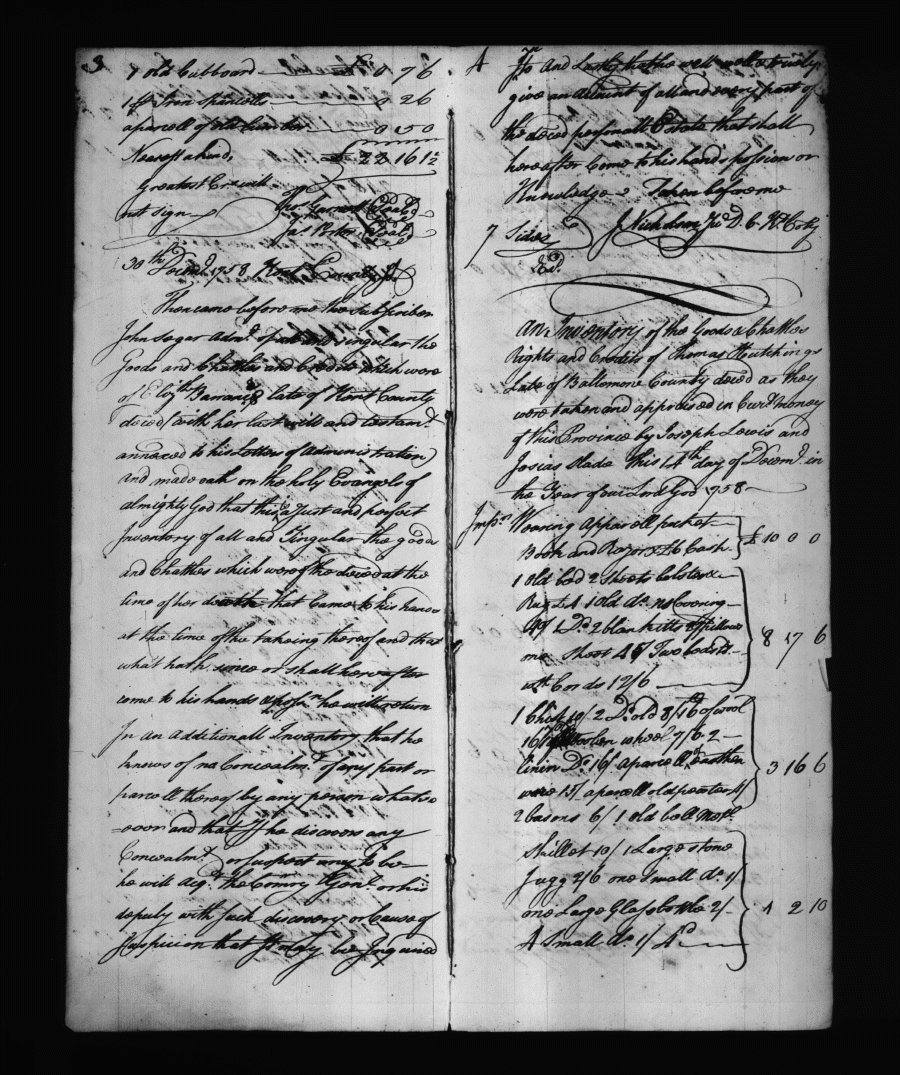 3
1 old Cubboard — 0 7 6
1 pr Iron Spancells — 0 2 6
a parcell of old — 0 15 0
Nearest akind, £ 22 16 1½
Greatest Cr: will
not sign
Seal
Jas Seal
30th Decemr 1758 Kent County Ss
Then came before me the Subscriber
John Eagar Admr of all and singular the
Goods and Chattles and Credits which were
of Elizth late of Kent County
deced with her last will and testamt
annexed to his Letters of Administration
and made oath on the holy Evangels of
almighty God that this is a Just and perfect
Inventory of all and Singular the goods
and Chattles which were of the deced at the
time of her death that Came to his hands
at the time of the takeing thereof and that
what hath since or shall hereafter
come to his hands & possn he will return
In an additionall Inventory that he
knows of no Concealmt of any part or
parcell thereof by any person whatso
=ever and that If he discovers any
Concealmt or suspect any to be
he will acqt the Comry Genl or his
deputy with such discovery or Cause of
Suspicion that It may be Inquired
4
Into And Lastly that he will well & truly
give an account of all and every part of
the deced personall Estate that shall
hereafter Come to his hands possion or
Knowledge Taken before me
7 Sides J Nicholson Jr D. C. Kt Coty
An Inventory of the Goods & Chattles
Rights and Credits of Thomas Hutchings
Late of Baltomore County deced as they
were taken and appraised in Curt money
of this Province by Joseph Lewis and
Josias Slade This 14th day of Decemr in
the Year of our Lord God 1758
Imps Wearing apparell pocket
Book and Razor & Cash £ 10 0 0
1 old bed 2 Sheets bolster &
Rugg 1 old do no Covering
1 Do 2 blankitts 2 pillows
one Sheet Two bedsteds 8 17 6
with Cordes 12/6
1 Chest 10/ 2 Do old 8/ of wool
Woolen wheel 7/6 2
Linin Do 16/ a parcell Earthen
ware 15/ a parcell old pewter 3 16 6
2 basons 6/ 1 old bell Mettl
Skillet 10/ 1 Large stone
Jugg 2/6 one Small do 1/
one Large Glass bottle 2/ 4 2 10
4 Small do 1/4d